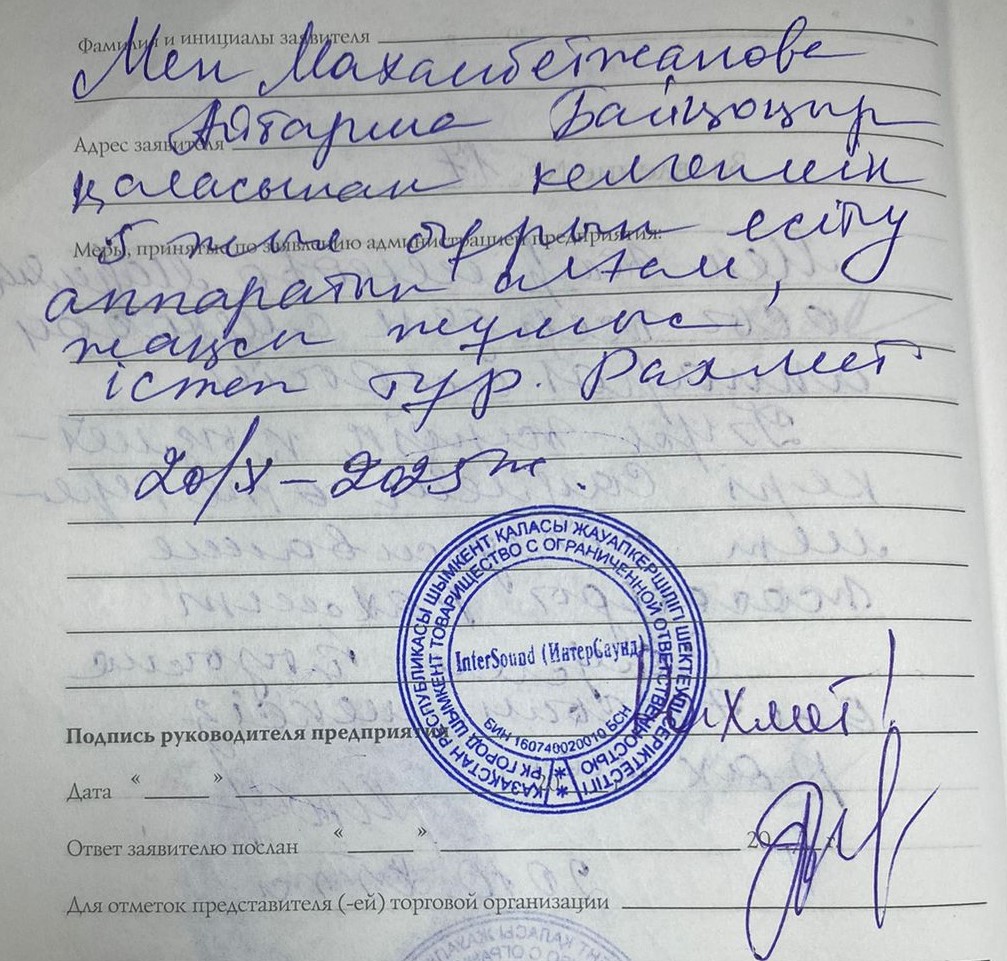 Фамилия и инициалы заявителя
Мен Махамбетжанова
Адрес заявителя
Айтарша Байқоңыр
қаласынан келгенмін
Меры, принятые по заявлению администрацией предприятия:
5 жыл бұрын есіту
аппаратын алғам,
жақсы жұмыс
істеп тұр. Рахмет
20/X – 2025ж.
ҚАЗАҚСТАН РЕСПУБЛИКАСЫ ШЫМКЕНТ ҚАЛАСЫ ЖАУАПКЕРШІЛІГІ ШЕКТЕУЛІ СЕРІКТЕСТІГІ
РК ГОРОД ШЫМКЕНТ ТОВАРИЩЕСТВО С ОГРАНИЧЕННОЙ ОТВЕТСТВЕННОСТЬЮ
InterSound (ИнтерСаунд)
БИН 160740020010 БСН
Рахмет!
Подпись руководителя предприятия
Дата « »
Ответ заявителю послан « » 20 г.
Для отметок представителя (-ей) торговой организации